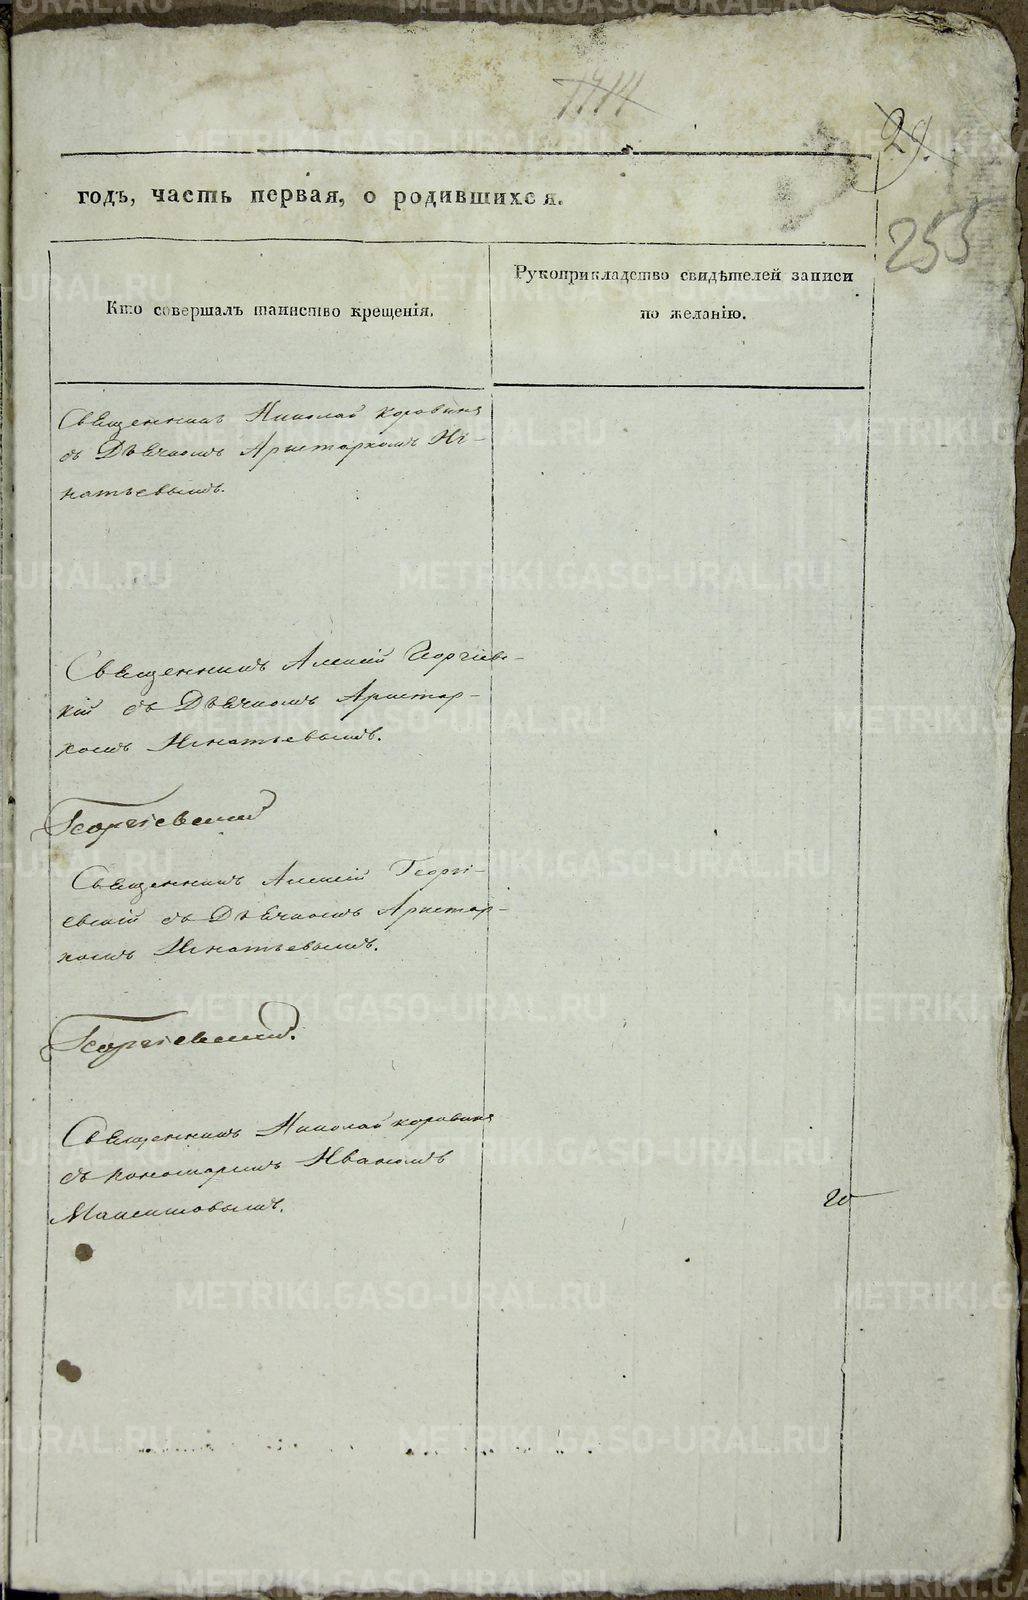 29.
255
годъ, часть первая, о родившихся.
Кто совершалъ таинство крещенія.
Рукоприкладство свидѣтелей записи
по желанію.
Священникъ Николай Коровинъ
съ Дьячкомъ Аристархомъ Иг-
натьевымъ.
Священникъ Алексій Георгіевс-
кій съ Дьячкомъ Аристар-
хомъ Игнатьевымъ.
Георгіевскій
Священникъ Алексій Георгі-
евскій съ Дьячкомъ Аристар-
хомъ Игнатьевымъ.
Георгіевскій.
Священникъ Николай Коровинъ
съ пономаремъ Иваномъ
Максимовымъ.
METRIKI.GASO-URAL.RU